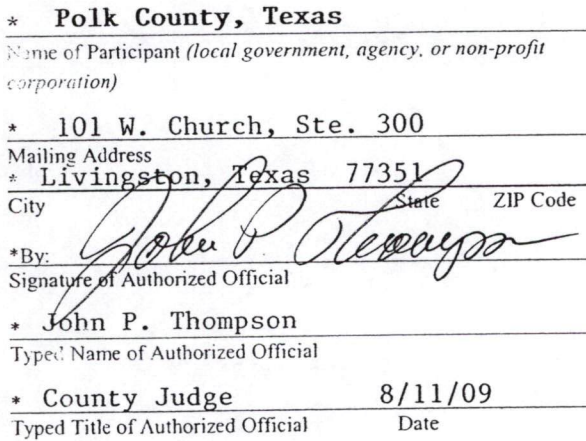 * Polk County, Texas
Name of Participant (local government, agency, or non-profit
corporation)
* 101 W. Church, Ste. 300
Mailing Address
* Livingston, Texas 77351
City State ZIP Code
*By: John P Thompson
Signature of Authorized Official
* John P. Thompson
Typed Name of Authorized Official
* County Judge 8/11/09
Typed Title of Authorized Official Date